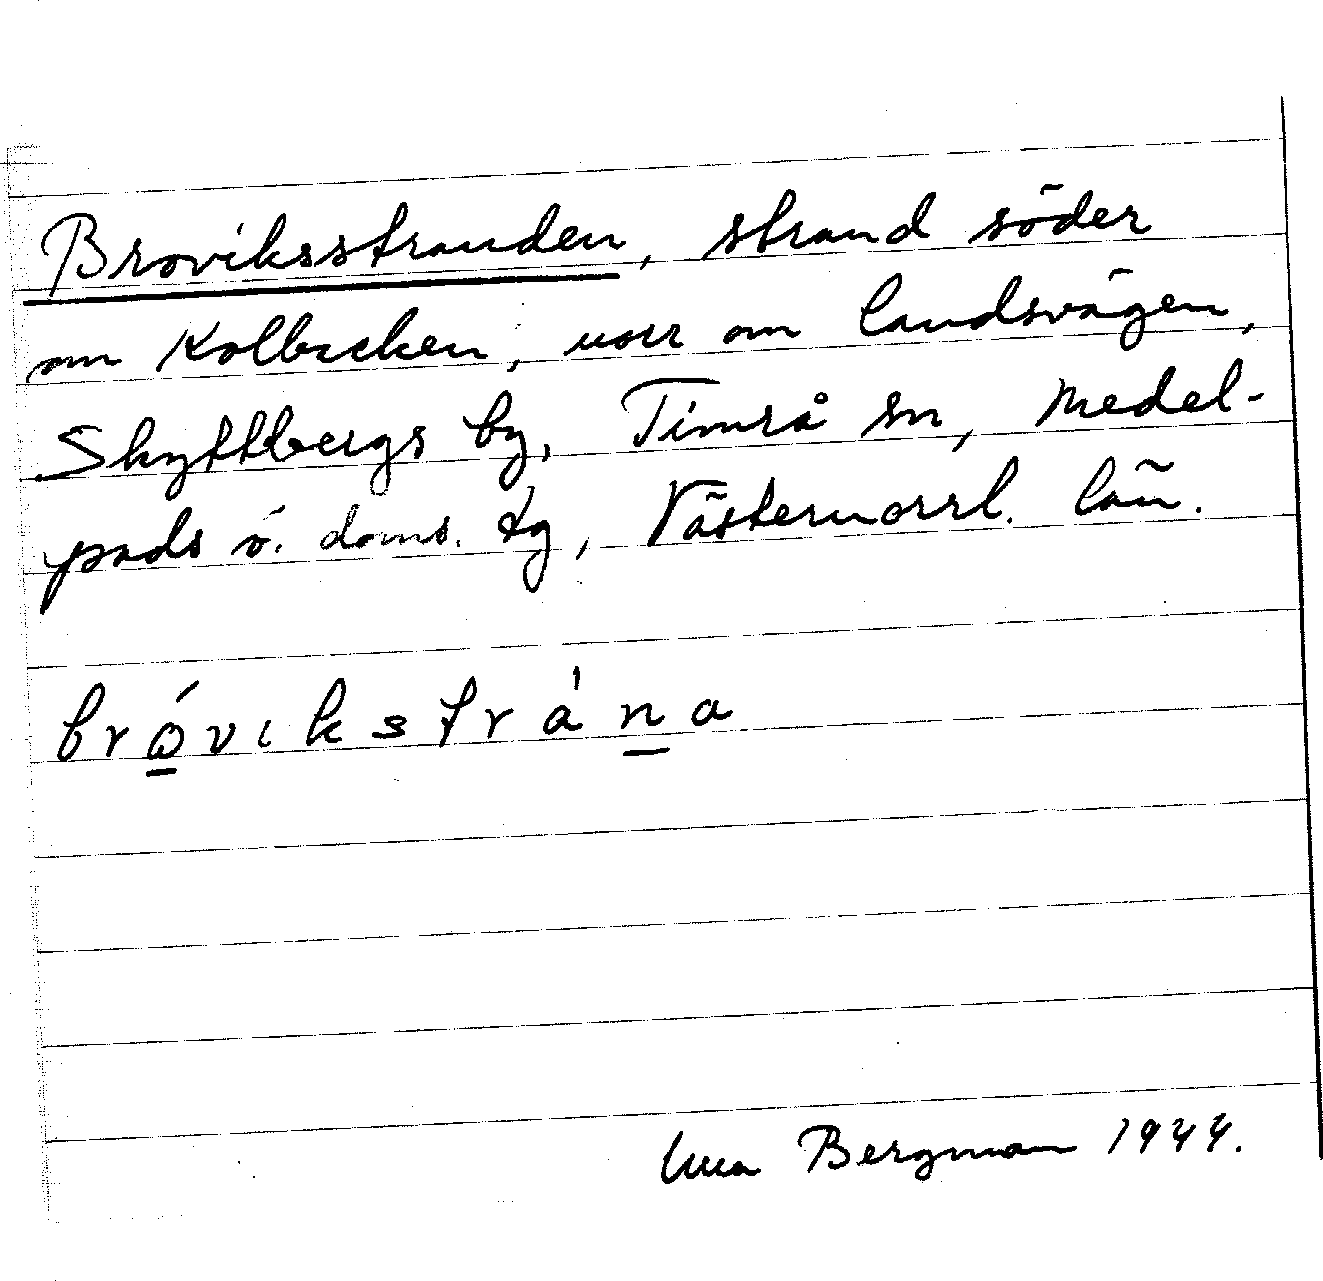 Broviksstranden, strand söder
om Kolbacken, norr om landsvägen,
Skyttbergs by, Timrå sn, Medel-
pads ö. doms. tg, Västernorrl. län.
bróvikstrána
Bergman 1944.